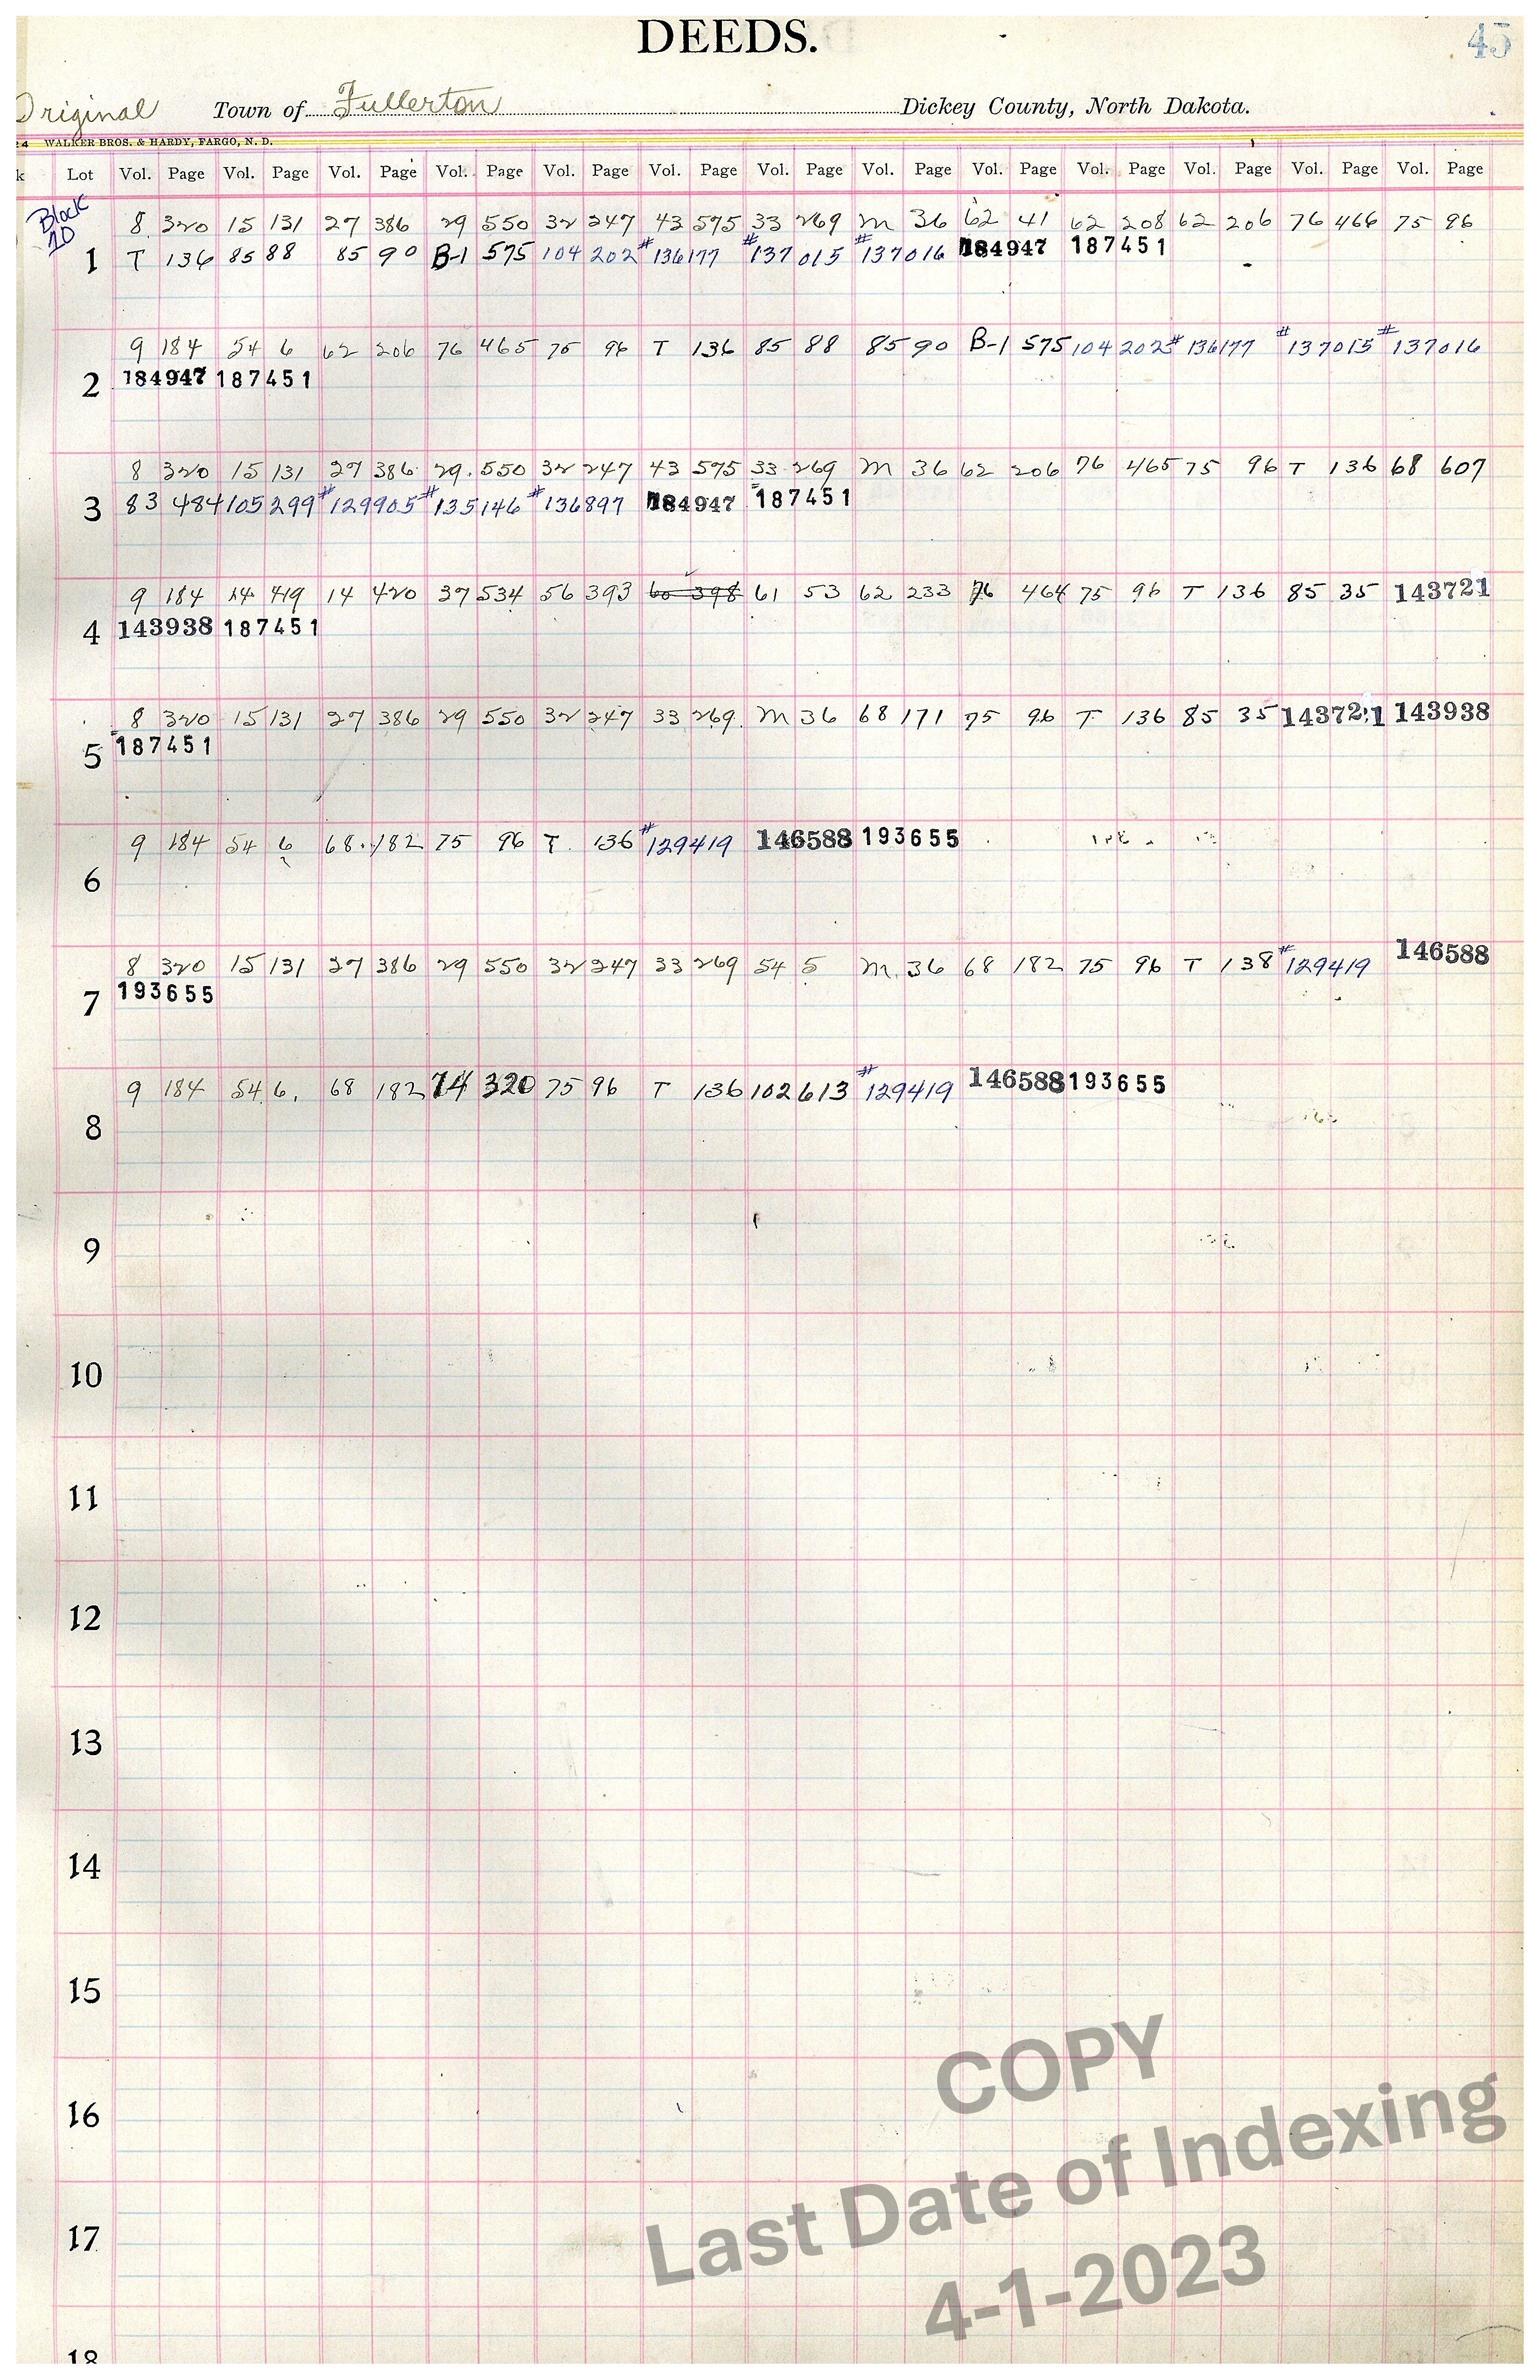 DEEDS.
45
Original Town of Fullerton Dickey County, North Dakota.
24 WALKER BROS. & HARDY, FARGO, N. D.
k Lot Vol. Page Vol. Page Vol. Page Vol. Page Vol. Page Vol. Page Vol. Page Vol. Page Vol. Page Vol. Page Vol. Page Vol. Page Vol. Page
Block 8 320 15 131 27 386 29 550 32 247 43 575 33 269 M 36 62 41 62 208 62 206 76 466 75 96
10
1 T 136 85 88 85 90 B-1 575 104 202 #136177 #137015 #137016 184947 187451
9 184 54 6 62 206 76 465 75 96 T 136 85 88 85 90 B-1 575 104 202 #136177 #137015 #137016
2 184947 187451
8 320 15 131 27 386 29 550 32 247 43 575 33 269 M 36 62 206 76 465 75 96 T 136 68 607
3 83 484 105 299 #129905 #135146 #136897 184947 187451
9 184 14 419 14 420 37 534 56 393 60 398 61 53 62 233 76 464 75 96 T 136 85 35 143721
4 143938 187451
8 320 15 131 27 386 29 550 32 247 33 269 M 36 68 171 75 96 T 136 85 35 143721 143938
5 187451
9 184 54 6 68 182 75 96 T 136 #129419 146588 193655
6
8 320 15 131 27 386 29 550 32 247 33 269 54 5 M 36 68 182 75 96 T 138 #129419 146588
7 193655
9 184 54 6 68 182 74 320 75 96 T 136 102 613 #129419 146588 193655
8
9
10
11
12
13
14
15
16
17
18
COPY
Last Date of Indexing
4-1-2023